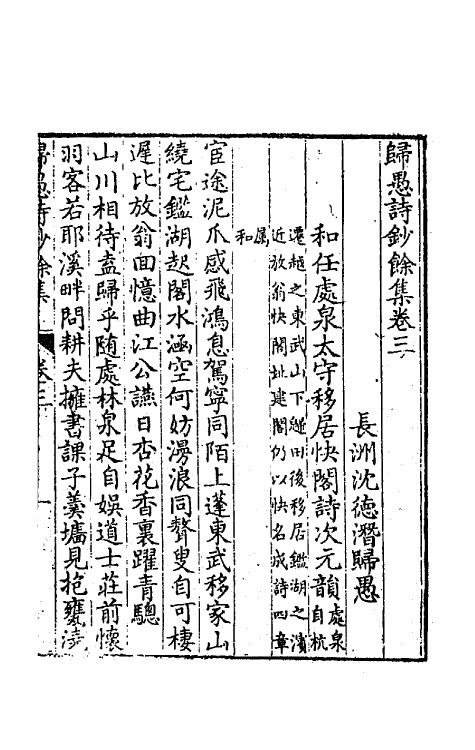 歸愚詩鈔餘集卷三
長洲沈德潛歸愚
和任處泉太守移居快閣詩次元韻處泉自杭
遷越之東武山下後移居鑑湖之濱
近放翁快閣址建閣仍以快名成詩四章
屬和
宦途泥爪感飛鴻息駕寧同陌上蓬東武移家山
繞宅鑑湖起閣水涵空何妨漫浪同聱叟自可棲
遲比放翁回憶曲江公讌日杏花香裏躍青驄
山川相待盍歸乎随處林泉足自娛道士莊前懷
羽客若耶溪畔問耕夫擁書課子羹墻見抱甕澆
歸愚詩鈔餘集 卷三 一